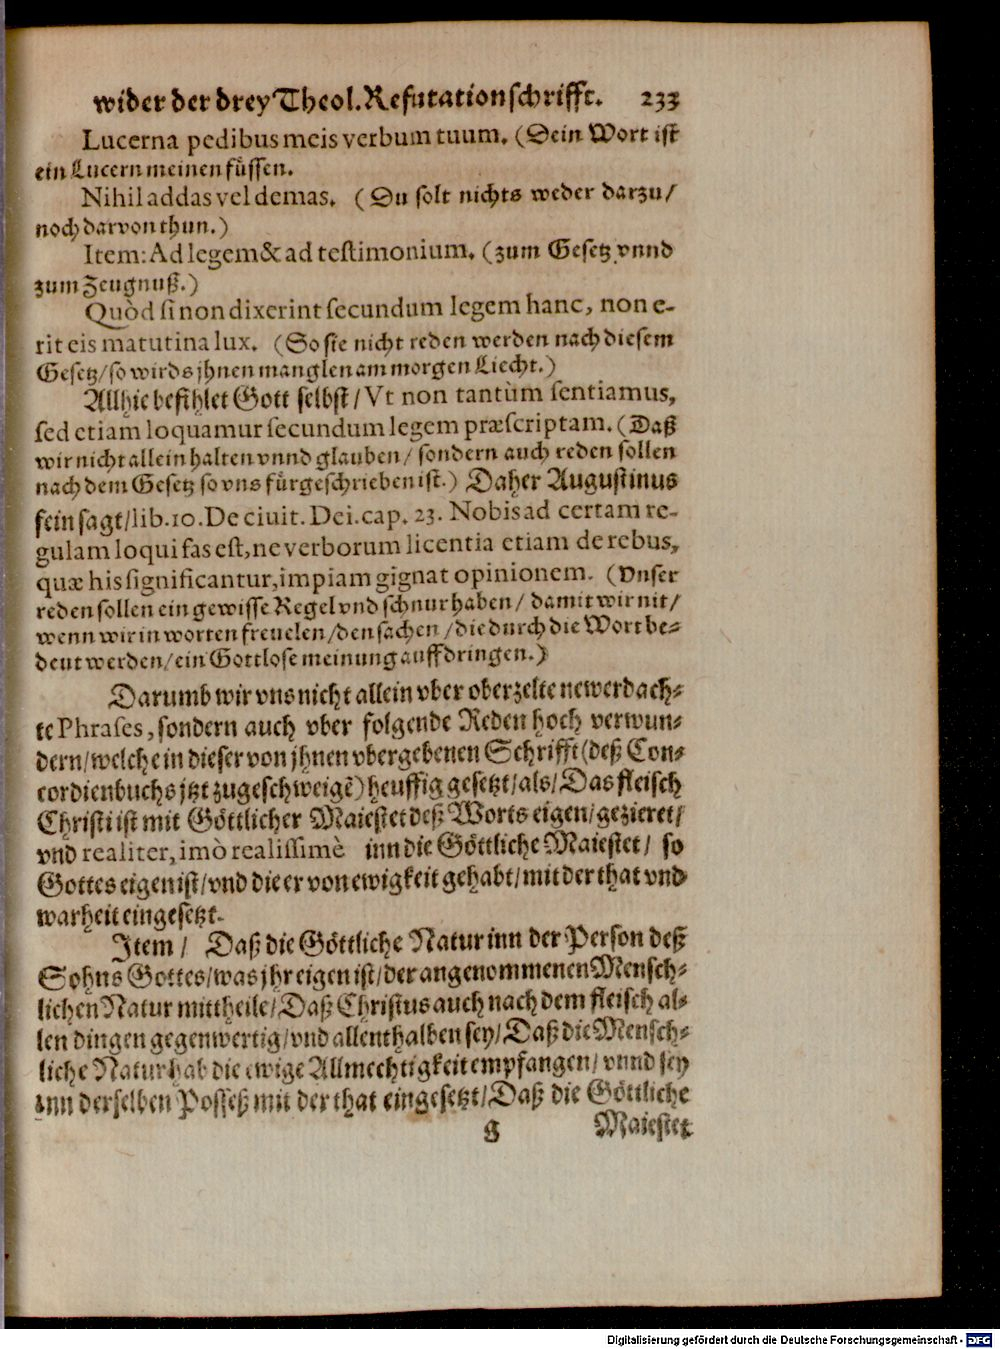 wider der drey Theol. Refutationschrifft. 233
Lucerna pedibus meis verbum tuum. (Dein Wort ist
ein Lucern meinen füssen.
Nihil addas vel demas. (Du solt nichts weder darzu/
noch darvon thun.)
Item: Ad legem & ad testimonium. (zum Gesetz vnnd
zum Zeugnuß.)
Quòd si non dixerint secundum legem hanc, non e-
rit eis matutina lux. (So sie nicht reden werden nach diesem
Gesetz/so wirds jhnen manglen am morgen Liecht.)
Allhie befihlet Gott selbst/Vt non tantùm sentiamus,
sed etiam loquamur secundum legem præscriptam. (Daß
wir nicht allein halten vnnd glauben/ sondern auch reden sollen
nach dem Gesetz so vns fürgeschrieben ist.) Daher Augustinus
fein sagt/lib. 10. De ciuit. Dei. cap. 23. Nobis ad certam re-
gulam loqui fas est, ne verborum licentia etiam de rebus,
quæ his significantur, impiam gignat opinionem. (Vnser
reden sollen ein gewisse Regel vnd schnur haben/ damit wir nit/
wenn wir in worten freuelen/den sachen/die durch die Wort be-
deut werden/ein Gottlose meinung auffdringen.)
Darumb wir vns nicht allein vber oberzelte newerdach-
te Phrases, sondern auch vber folgende Reden hoch verwun-
dern/welche in dieser von jhnen vbergebenen Schrifft (deß Con-
cordienbuchs jtzt zugeschweigẽ) heuffig gesetzt/als/Das fleisch
Christi ist mit Göttlicher Maiestet deß Worts eigen/gezieret/
vnd realiter, imò realissimè inn die Göttliche Maiestet/ so
Gottes eigen ist/vnd die er von ewigkeit gehabt/mit der that vnd
warheit eingesetzt.
Item/ Daß die Göttliche Natur inn der Person deß
Sohns Gottes/was jhr eigen ist/der angenommenen Mensch-
lichen Natur mittheile/Daß Christus auch nach dem fleisch al-
len dingen gegenwertig/vnd allenthalben sey/Daß die Mensch-
liche Natur hab die ewige Allmechtigkeit empfangen/vnnd sey
inn derselben Posseß mit der that eingesetzt/Daß die Göttliche
g Maiestet
Digitalisierung gefördert durch die Deutsche Forschungsgemeinschaft - DFG